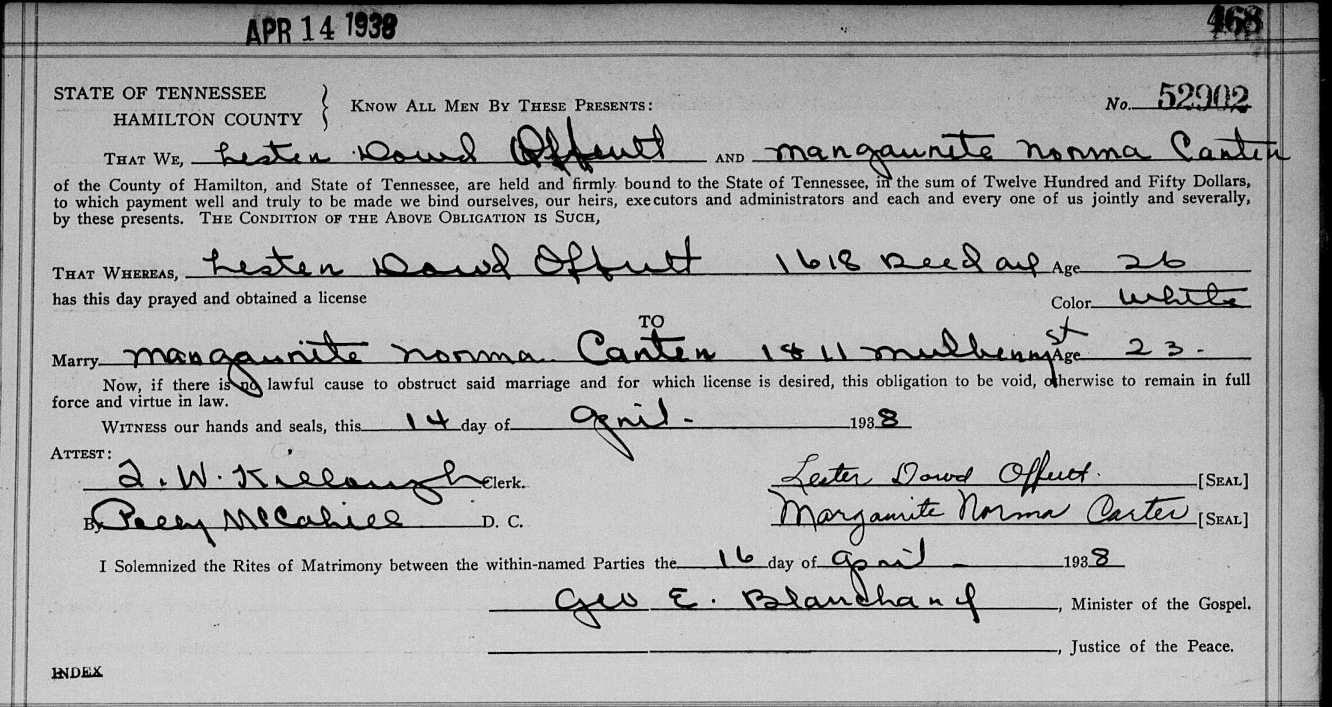 APR 14 1938
468
STATE OF TENNESSEE
HAMILTON COUNTY
KNOW ALL MEN BY THESE PRESENTS:
No. 52902
THAT WE, Lester Dowd Offutt AND Margaurite Norma Carter
of the County of Hamilton, and State of Tennessee, are held and firmly bound to the State of Tennessee, in the sum of Twelve Hundred and Fifty Dollars,
to which payment well and truly to be made we bind ourselves, our heirs, executors and administrators and each and every one of us jointly and severally,
by these presents. THE CONDITION OF THE ABOVE OBLIGATION IS SUCH,
THAT WHEREAS, Lester Dowd Offutt 1618 Reed ave Age 26
has this day prayed and obtained a license
Color White
TO
Marry Margaurite Norma Carter 1811 Mulberry st Age 23-
Now, if there is no lawful cause to obstruct said marriage and for which license is desired, this obligation to be void, otherwise to remain in full
force and virtue in law.
WITNESS our hands and seals, this 14 day of April- 1938
ATTEST:
W. Killough Clerk. Lester Dowd Offutt. [SEAL]
By McCahill D. C. Margaurite Norma Carter [SEAL]
I Solemnized the Rites of Matrimony between the within-named Parties the 16 day of April - 1938
Geo E. Blanchard, Minister of the Gospel.
, Justice of the Peace.
INDEX